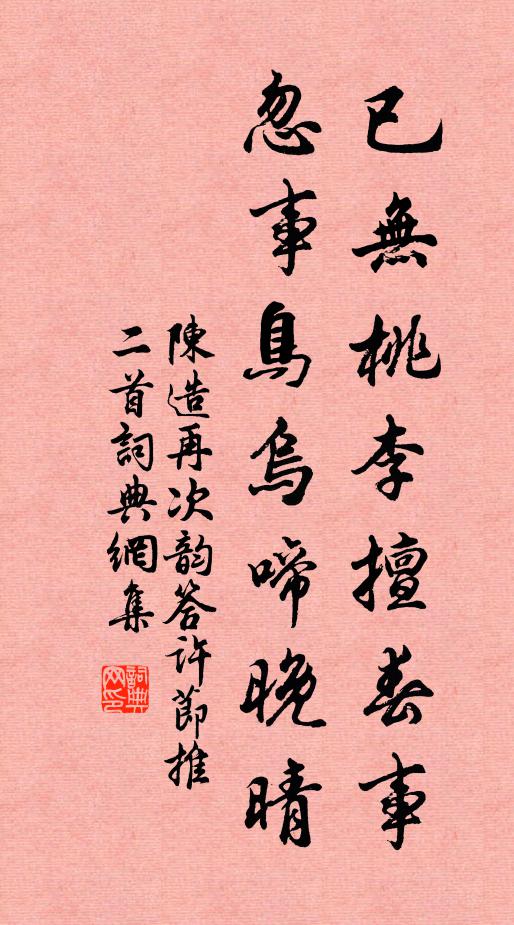 已無桃李擅春事
忽事鳥烏啼晚晴
陳造再次韵答許節推
二首詞典網集
詞典網印